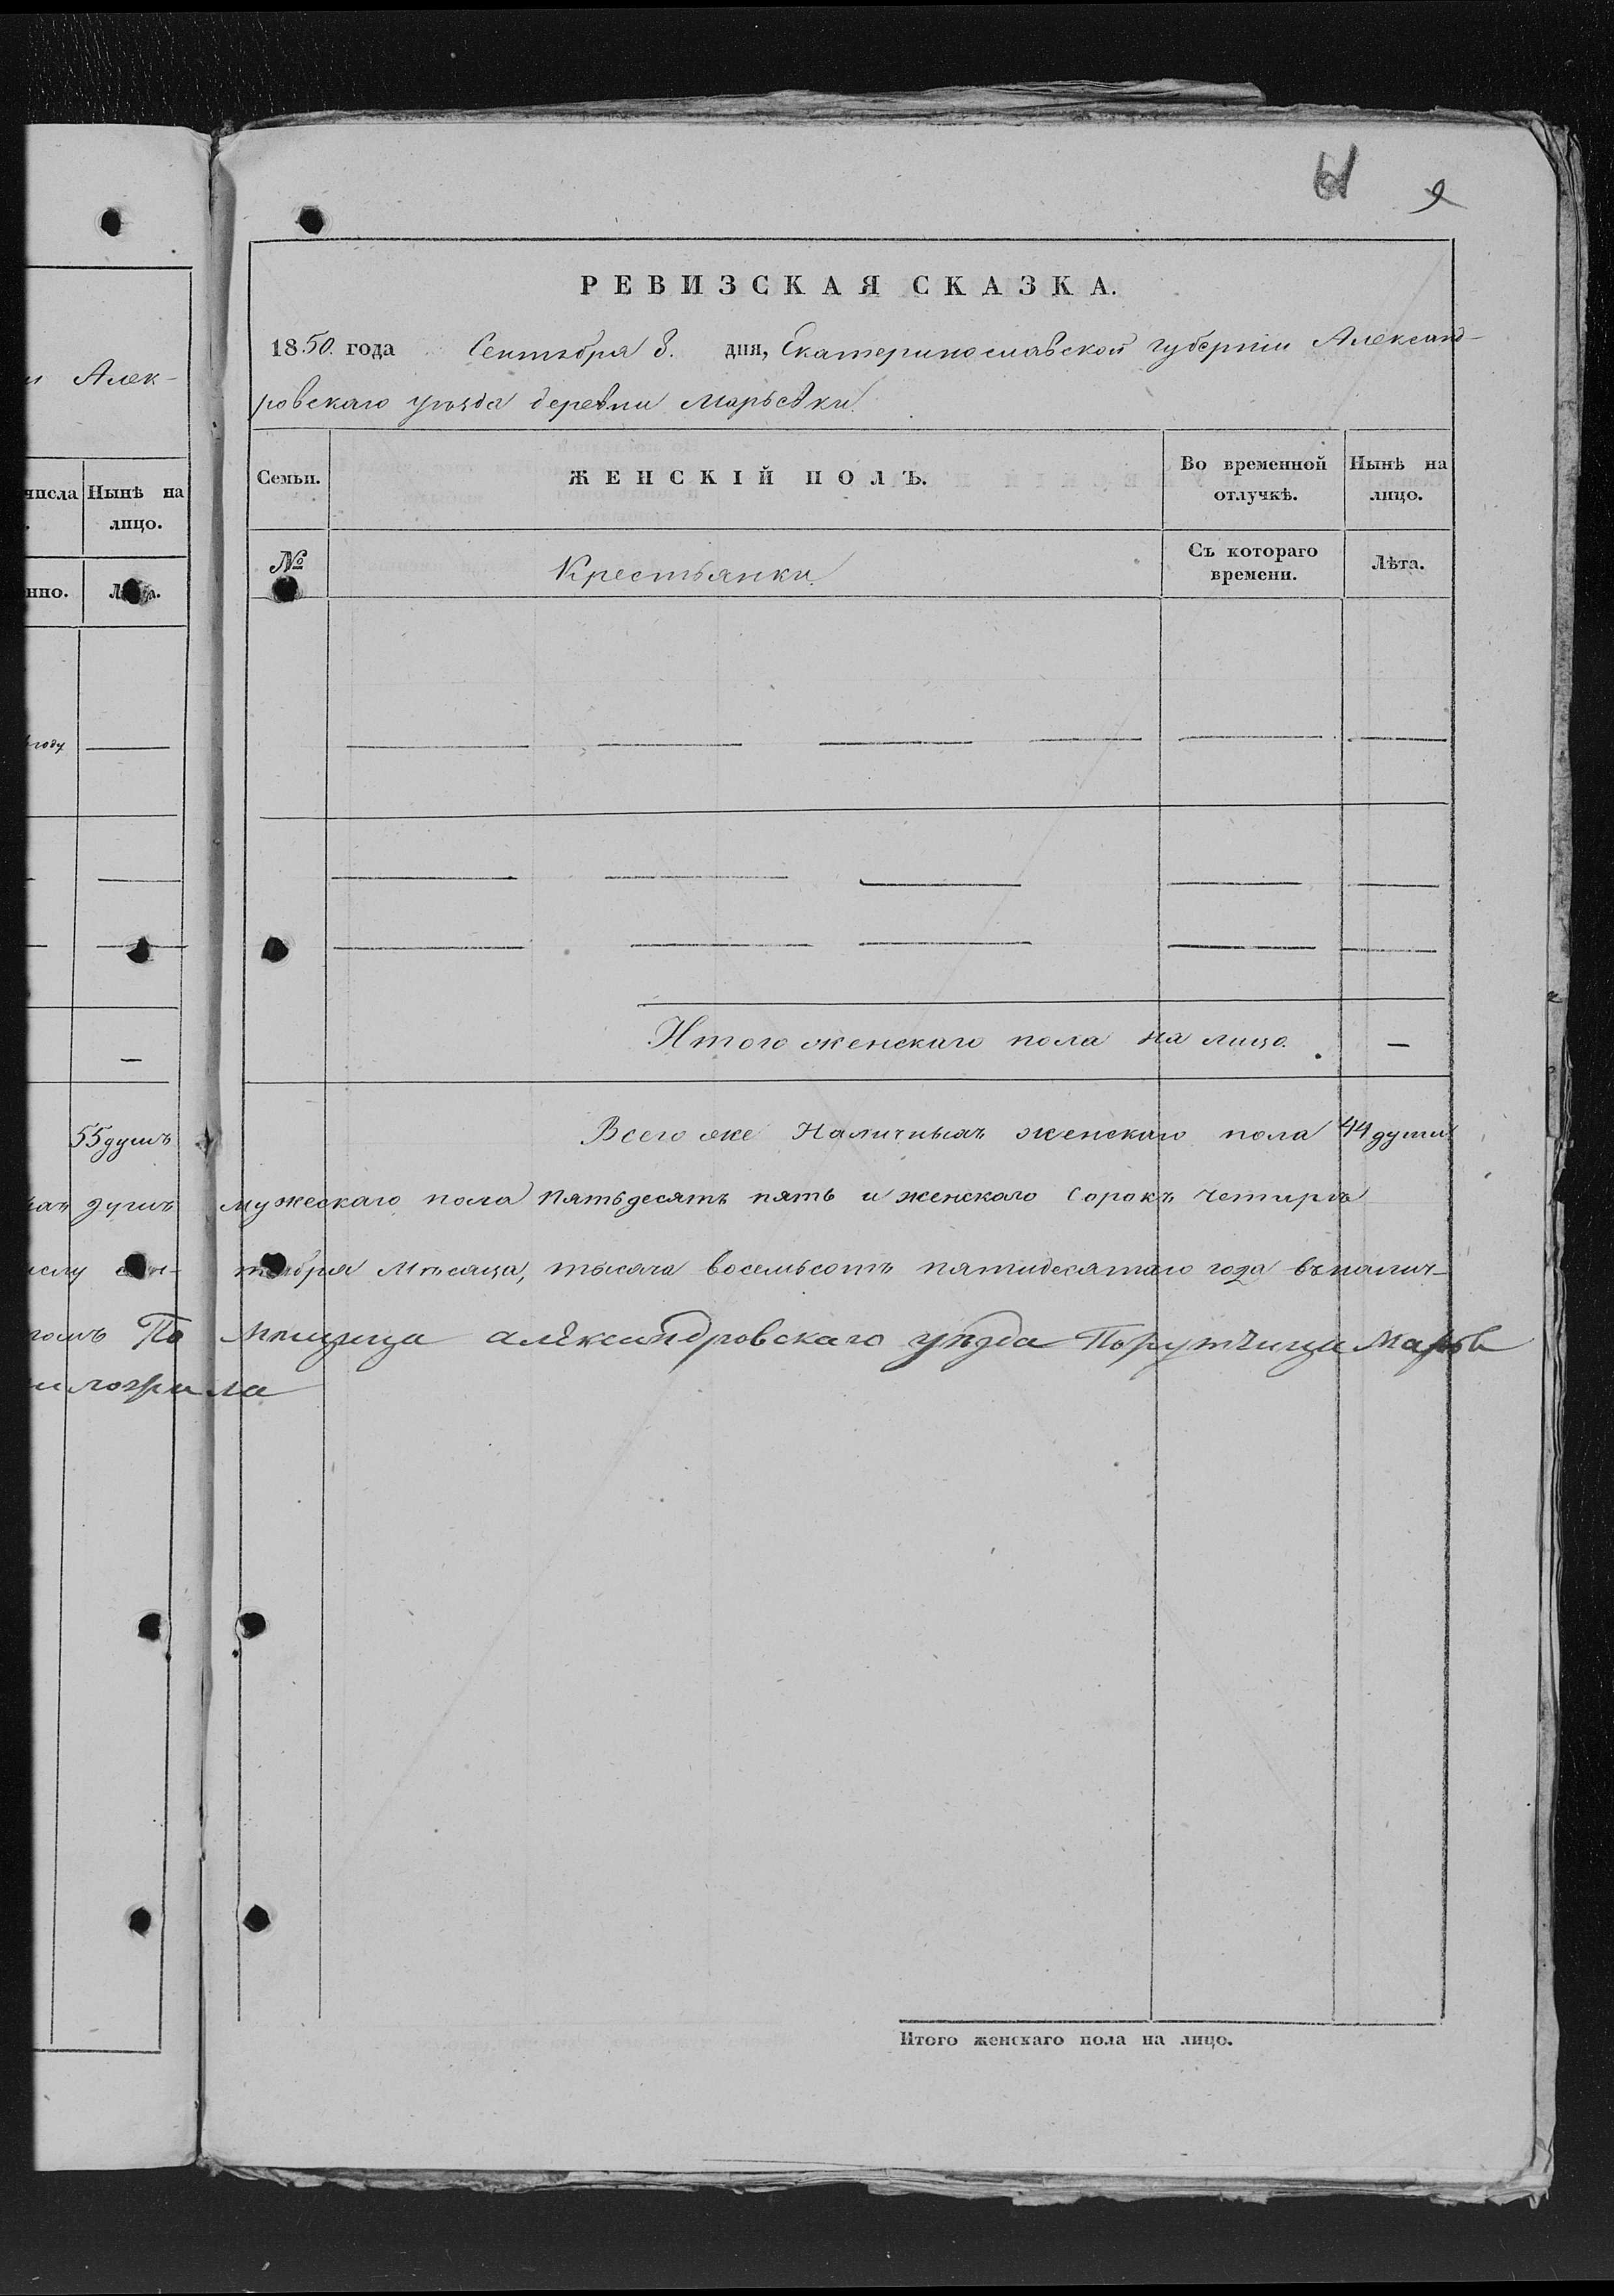 61 9
РЕВИЗСКАЯ СКАЗКА.
1850. года Сентября 8. дня, Екатеринославской губерніи Александ-
ровскаго уѣзда деревни Марьевки.
Семьи.
ЖЕНСКІЙ ПОЛЪ.
Во временной отлучкѣ.
Нынѣ на лицо.
№
Крестьянки
Съ котораго времени.
Лѣта.
Итого женскаго пола на лицо. —
Всего же Наличныхъ женскаго пола 44 души
мужескаго пола пятьдесятъ пять и женскаго сорокъ четыре
тября Мѣсяца, тысяча восемьсотъ пятидесятаго года въ налич-
мѣщица александровскаго уѣзда Порутчица Марья
ла
Итого женскаго пола на лицо.
Алек-
числа
Нынѣ на
лицо.
нно.
Лѣта.
году
55 душъ
душъ
По